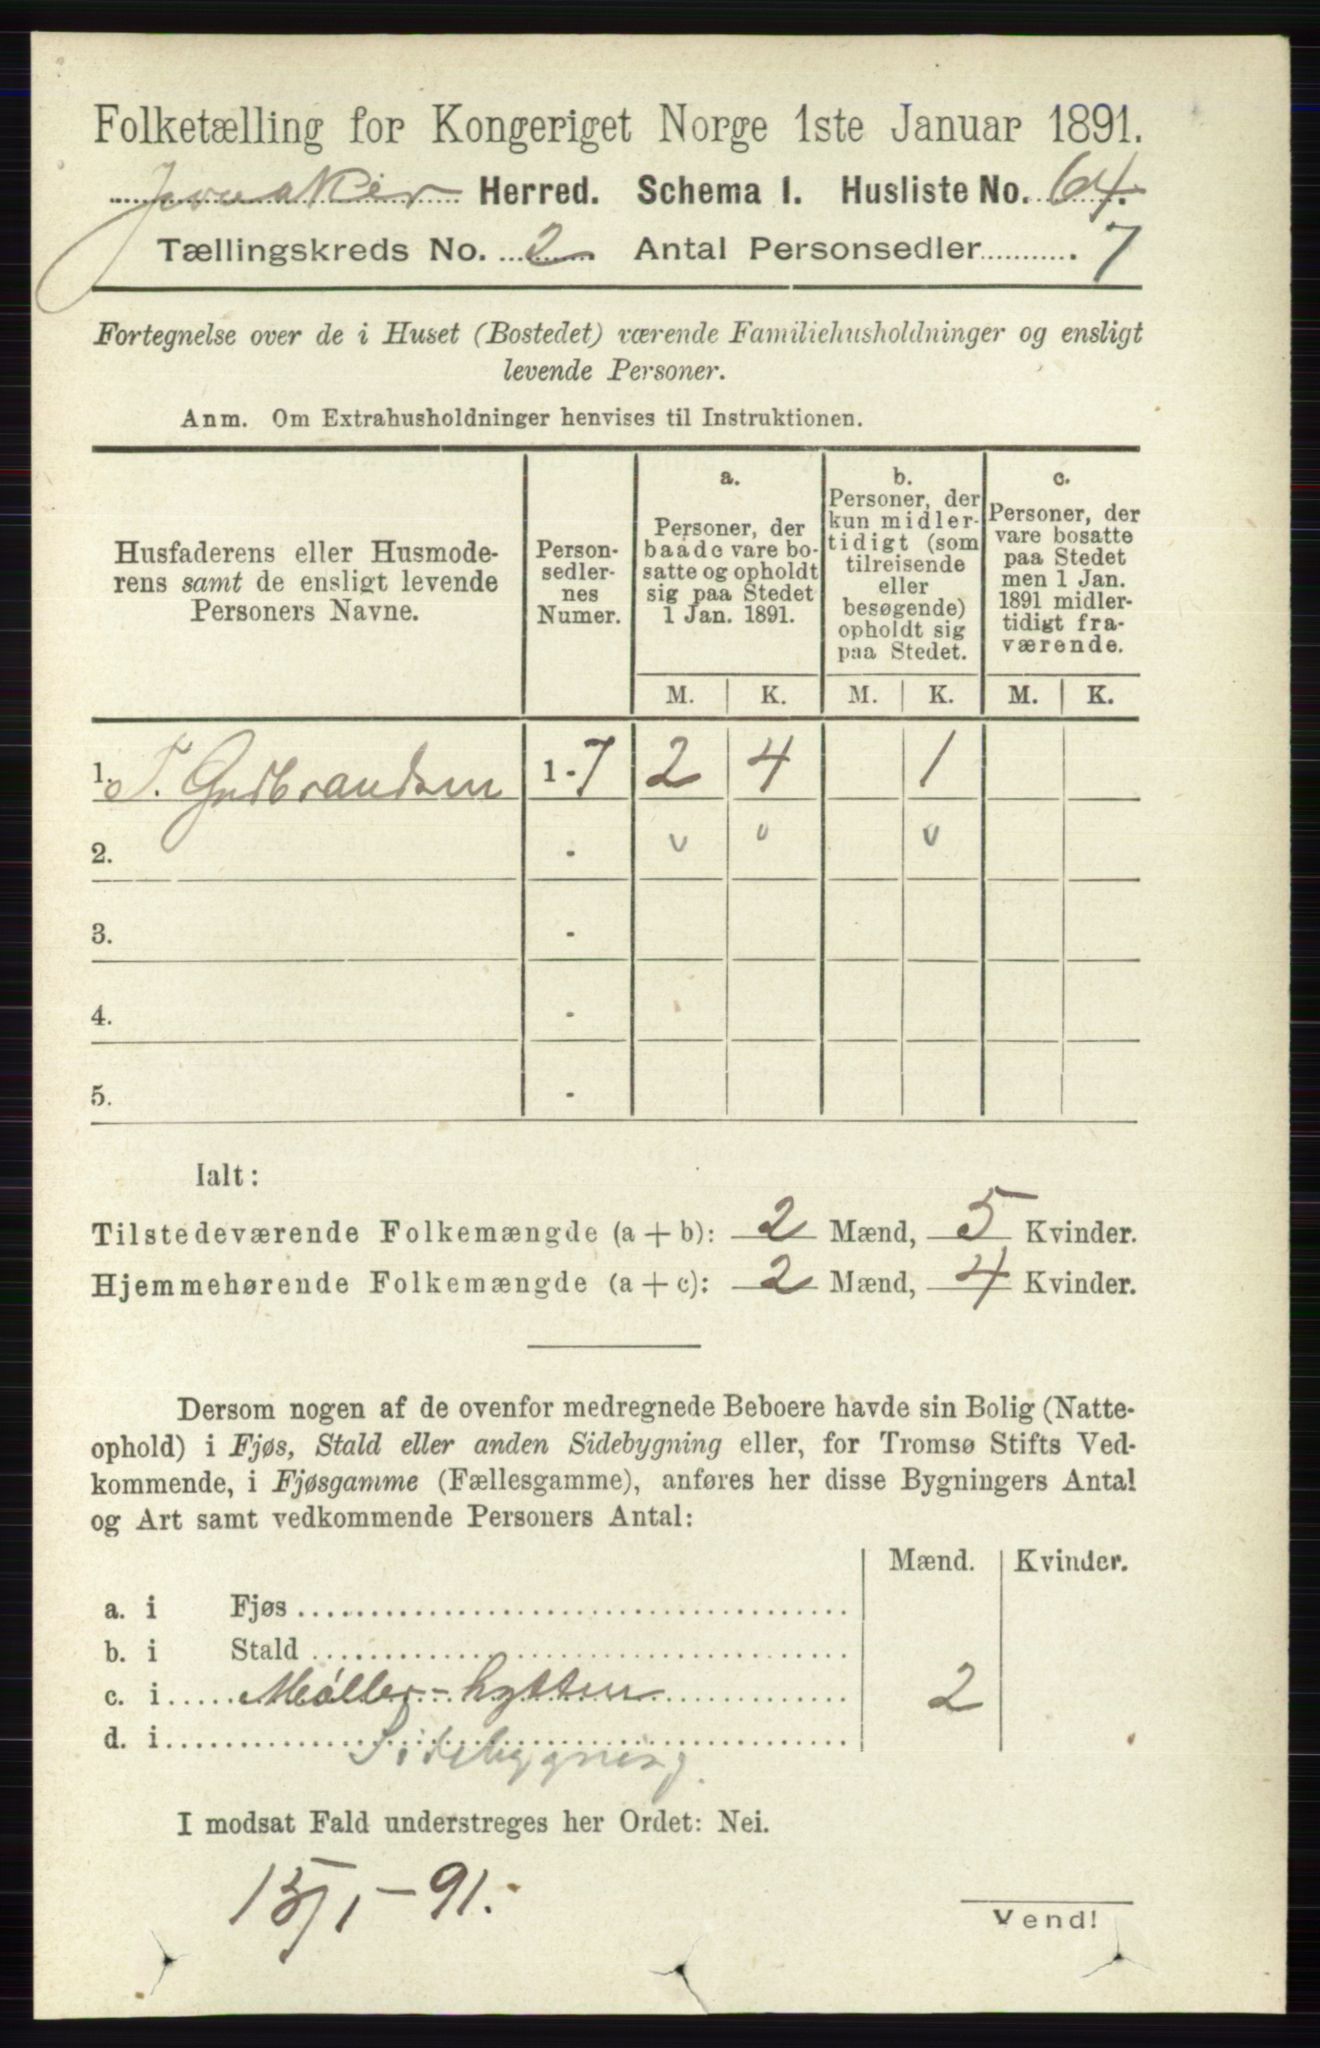 Folketælling for Kongeriget Norge 1ste Januar 1891.
Jevnaker Herred. Schema I. Husliste No. 64.
Tællingskreds No. 2 Antal Personsedler 7
Fortegnelse over de i Huset (Bostedet) værende Familiehusholdninger og ensligt
levende Personer.
Anm. Om Extrahusholdninger henvises til Instruktionen.
Husfaderens eller Husmode-
rens samt de ensligt levende
Personers Navne.
Person-
sedler-
nes
Numer.
a.
Personer, der
baade vare bo-
satte og opholdt
sig paa Stedet
1 Jan. 1891.
b.
Personer, der
kun midler-
tidigt (som
tilreisende
eller
besøgende)
opholdt sig
paa Stedet.
c.
Personer, der
vare bosatte
paa Stedet
men 1 Jan.
1891 midler-
tidigt fra-
værende.
M. K. M. K. M. K.
1. T. Gudbrandsen 1-7 2 4 1
2. - v " v
3. -
4. -
5. -
Ialt:
Tilstedeværende Folkemængde (a + b): 2 Mænd, 5 Kvinder.
Hjemmehørende Folkemængde (a + c): 2 Mænd, 4 Kvinder.
Dersom nogen af de ovenfor medregnede Beboere havde sin Bolig (Natte-
ophold) i Fjøs, Stald eller anden Sidebygning eller, for Tromsø Stifts Ved-
kommende, i Fjøsgamme (Fællesgamme), anføres her disse Bygningers Antal
og Art samt vedkommende Personers Antal:
Mænd. Kvinder.
a. i Fjøs
b. i Stald
c. i Møller-hytten 2
d. i
Sidebygning.
I modsat Fald understreges her Ordet: Nei.
15/1-91.
Vend!